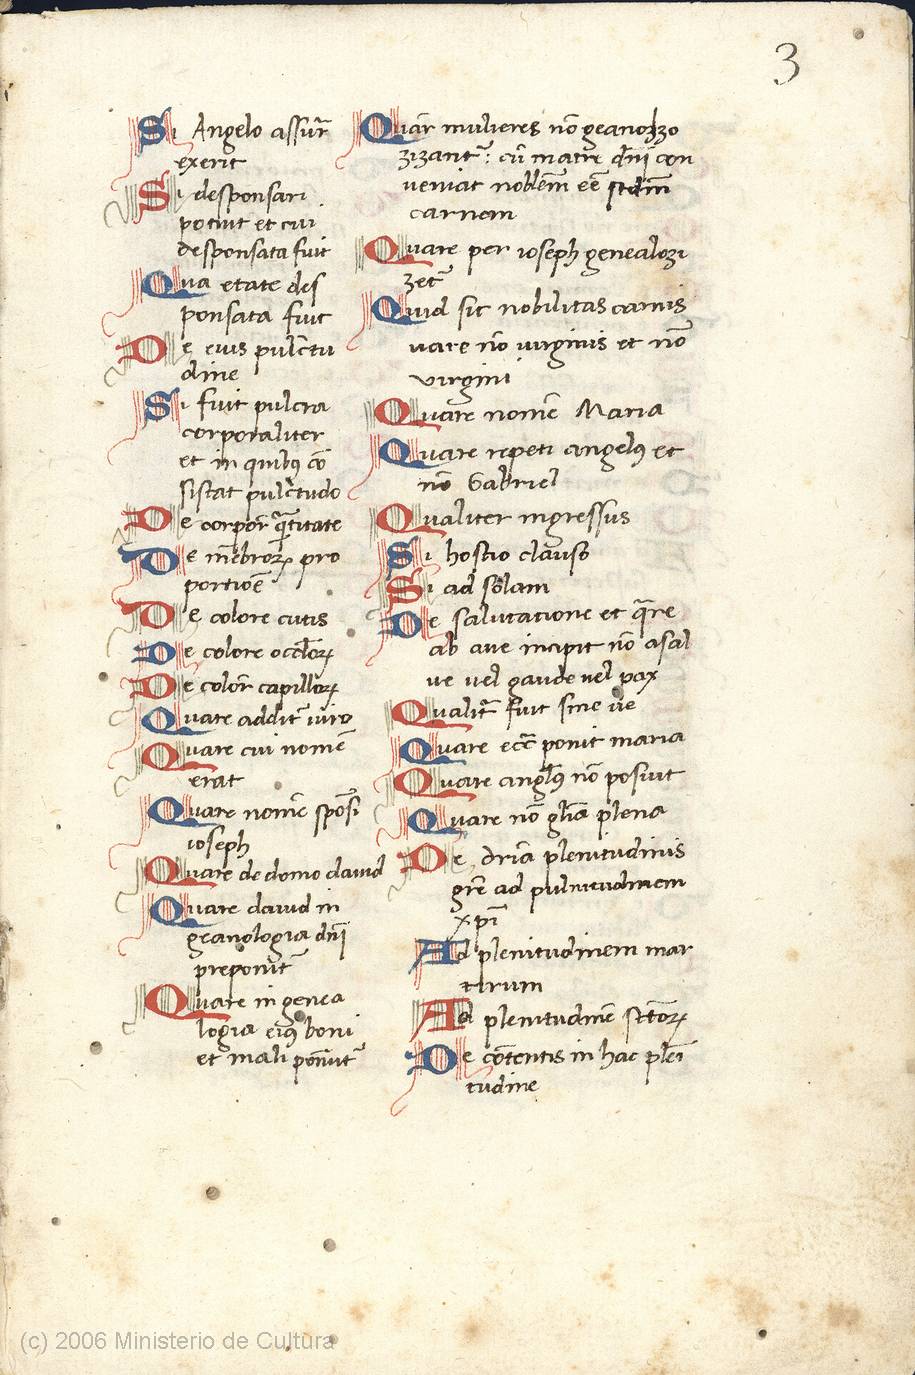 3
Si Angelo assur̄
exerit
Si desponsari
potuit et cui
desponsata fuit
Qua etate des
ponsata fuit
De eius pulc̄tu
dine
Si fuit pulcra
corporaliter
et in quibꝰ cō
sistat pulc̄tudo
De corpor̄ q̄titate
De mēbroꝝ pro
portiōe
De colore cutis
De colore occl̄oꝝ
De color̄ capilloꝝ
Quare addit᷑ viro
Quare cui nomē
erat
Quare nomē spōsi
ioseph
Quare de domo david
Quare dauid in
geanologia dn̄i
preponit᷑
Quare in genea
logia eiꝰ boni
et mali ponūt᷑
Quar̄ mulieres nō geanolo
zizant᷑: cū matre dn̄i con
veniāt noblem̄ eē scdm̄
carnem
Quare per ioseph genealozi
zet᷑
Quid sit nobilitas carnis
uare nō virginis et nō
virgini
Quare nomē Maria
Quare repeti angelꝰ et
nō Gabriel
Qualiter ingressus
Si hostio clauso
Si ad solam
De salutacione et q̄re
ab ave incipit nō a sal
ve vel gaude vel pax
Qualit᷑ fuit sine ve
Quare ecc̄ ponit maria
Quare angl̄ꝰ nō posuit
Quare nō gr̄ia plena
De driā plenitudinis
gr̄e ad plenitudinem
xp̄i
Ad plenitudinem mar
tirum
Ad plenitudinē sc̄toꝝ
De cōtentis in hac pleni
tudine
(c) 2006 Ministerio de Cultura